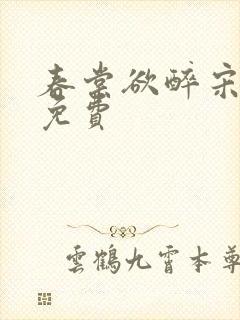 春棠欲醉宋
免費
雲鶴九霄本尊